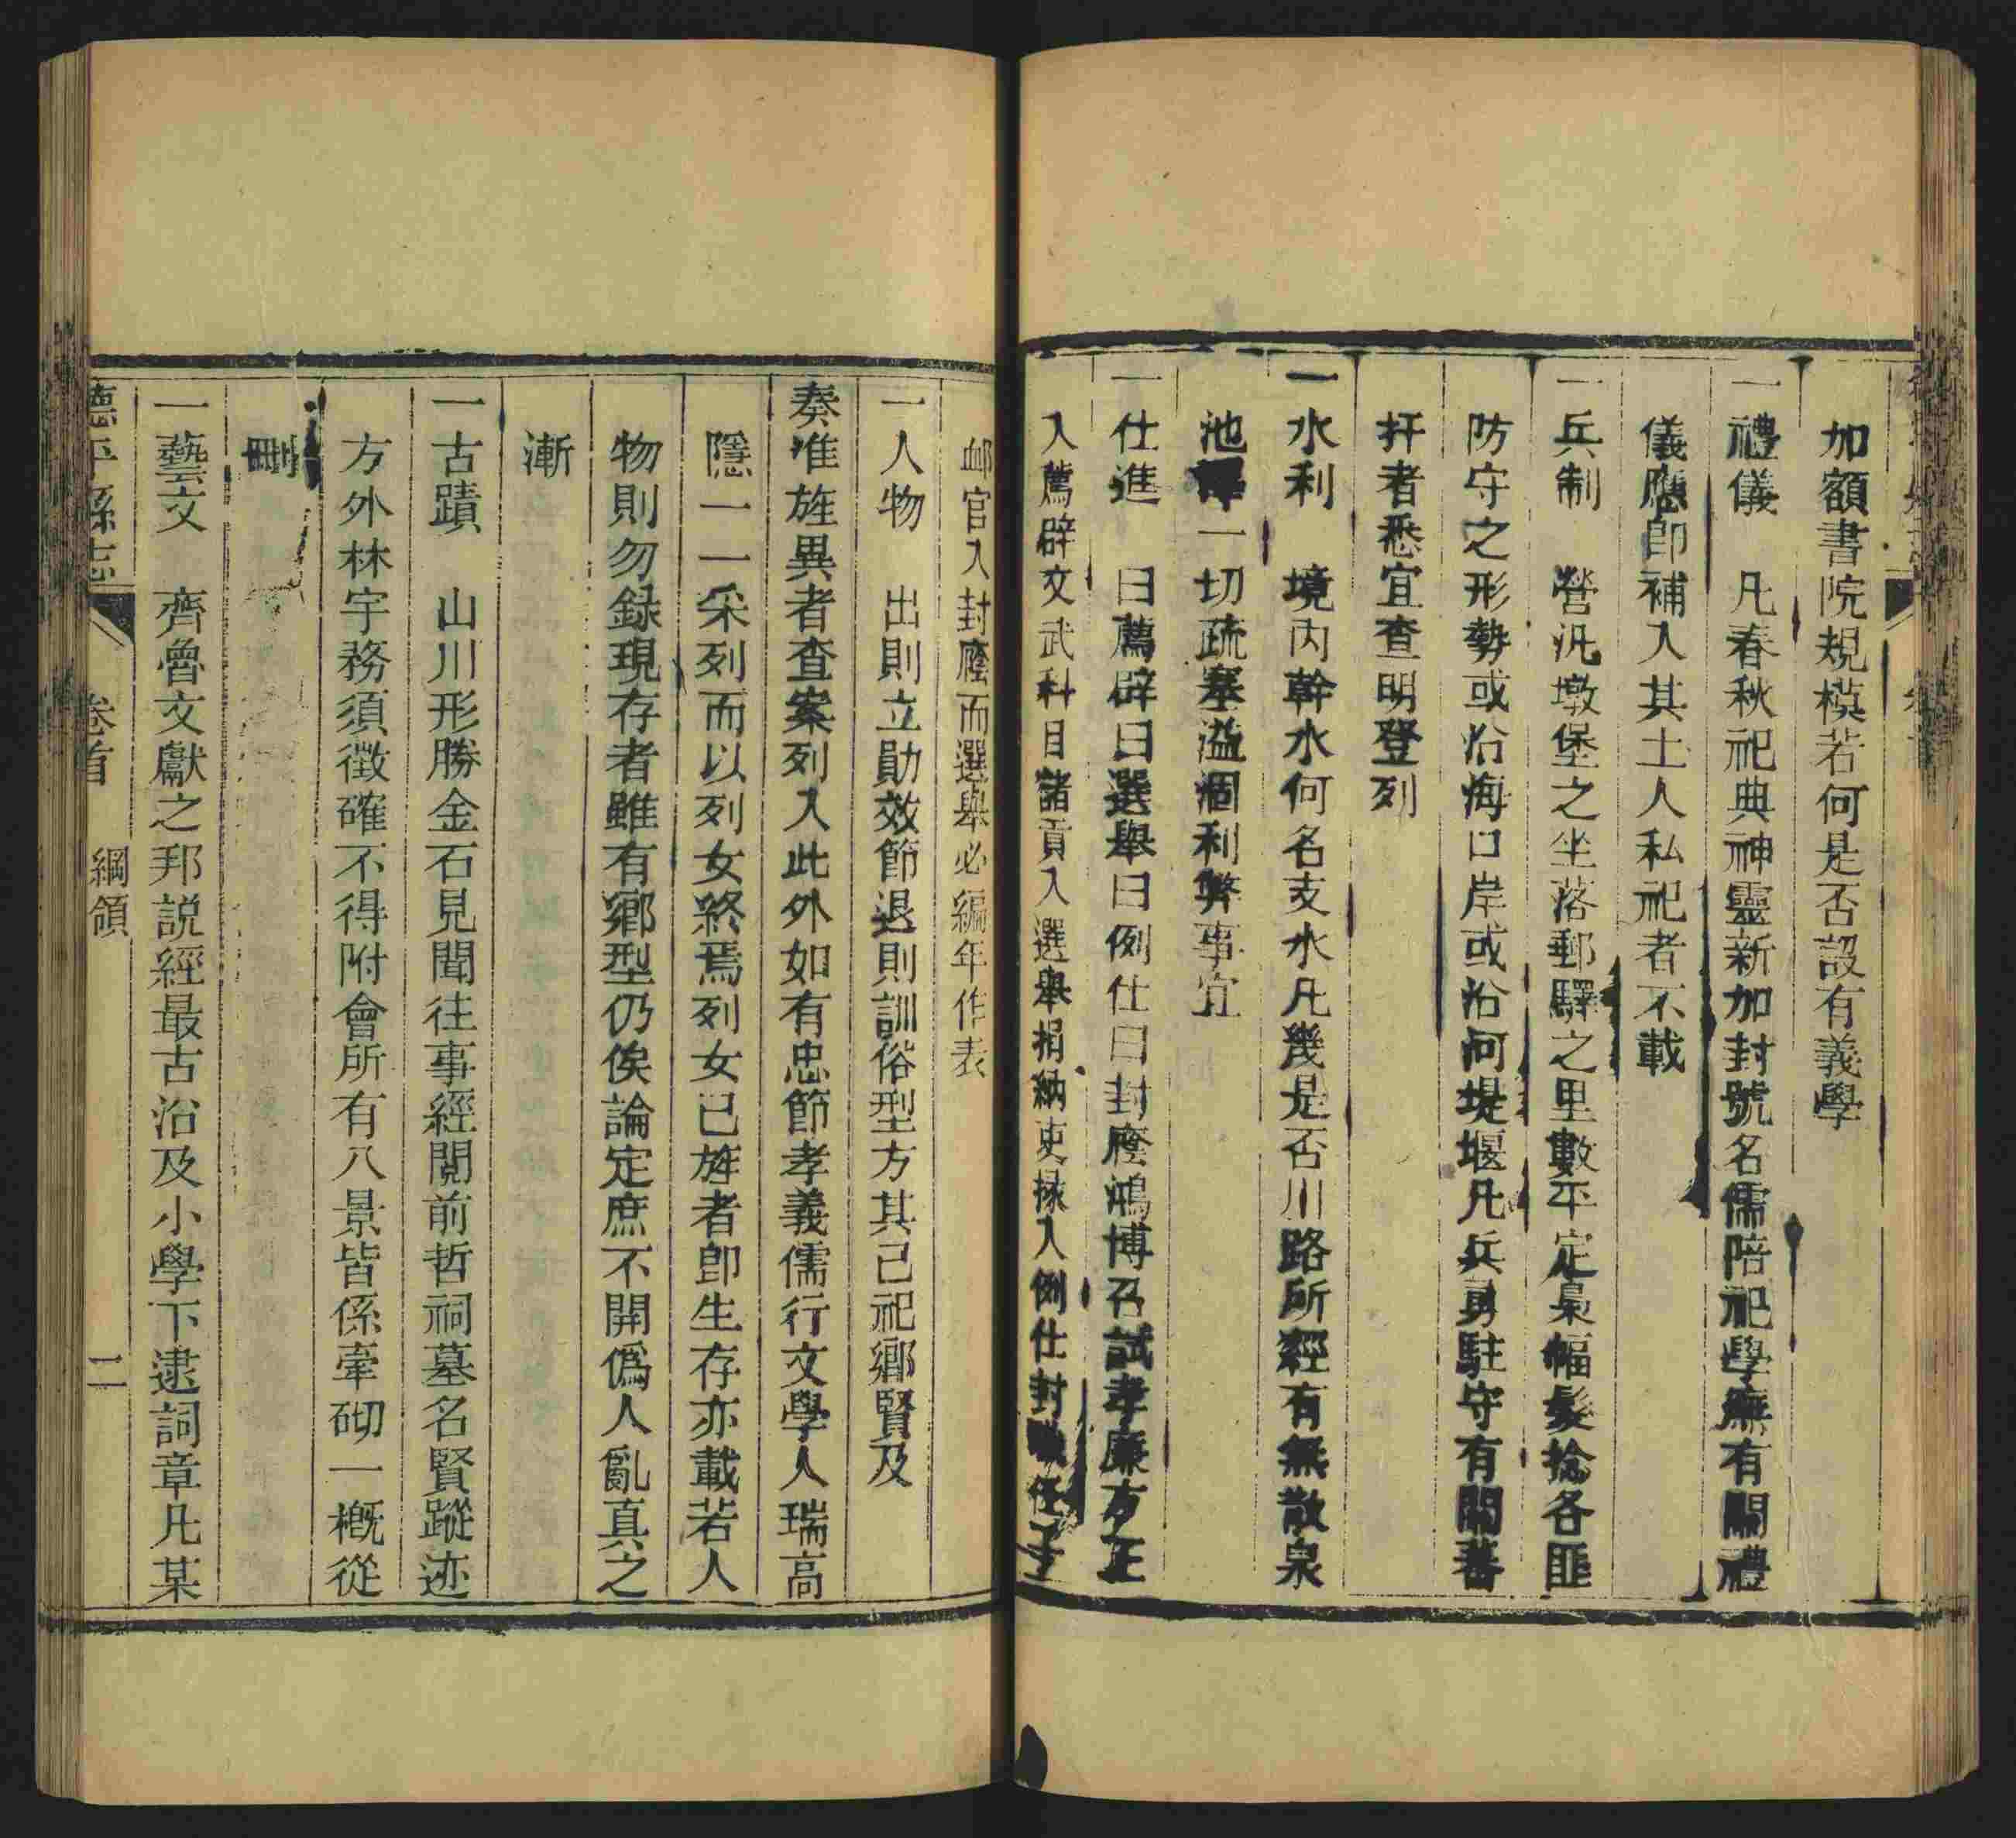 加額書院規模若何是否設有義學
一禮儀　凡春秋祀典神靈新加封號名儒陪祀學廡有關禮
儀應卽補入其土人私祀者不載
一兵制　營汛墩堡之坐落郵驛之里數平定梟幅髮捻各匪
防守之形勢或沿海口岸或沿河堤堰凡兵勇駐守有關善
扞者悉宜查明登列
一水利　境內幹水何名支水凡幾是否川路所經有無散泉
池一切疏塞溢涸利弊事宜
一仕進　曰薦辟曰選舉曰例仕曰封廕鴻博召試孝廉方正
入薦辟文武科目諸貢入選舉捐納吏掾入例仕封任子
卹官入封廕而選舉必編年作表
一人物　出則立勛效節退則訓俗型方其已祀鄉賢及
奏准旌異者查案列入此外如有忠節孝義儒行文學人瑞高
隱一一采列而以列女終焉列女已旌者卽生存亦載若人
物則勿録現存者雖有鄉型仍俟論定庶不開僞人亂真之
漸
一古蹟　山川形勝金石見聞往事經閱前哲祠墓名賢蹤迹
方外林宇務須徵確不得附會所有八景皆係牽砌一槪從
刪
一藝文　齊魯文獻之邦説經最古治及小學下逮詞章凡某
德平縣志　卷首　綱領　二